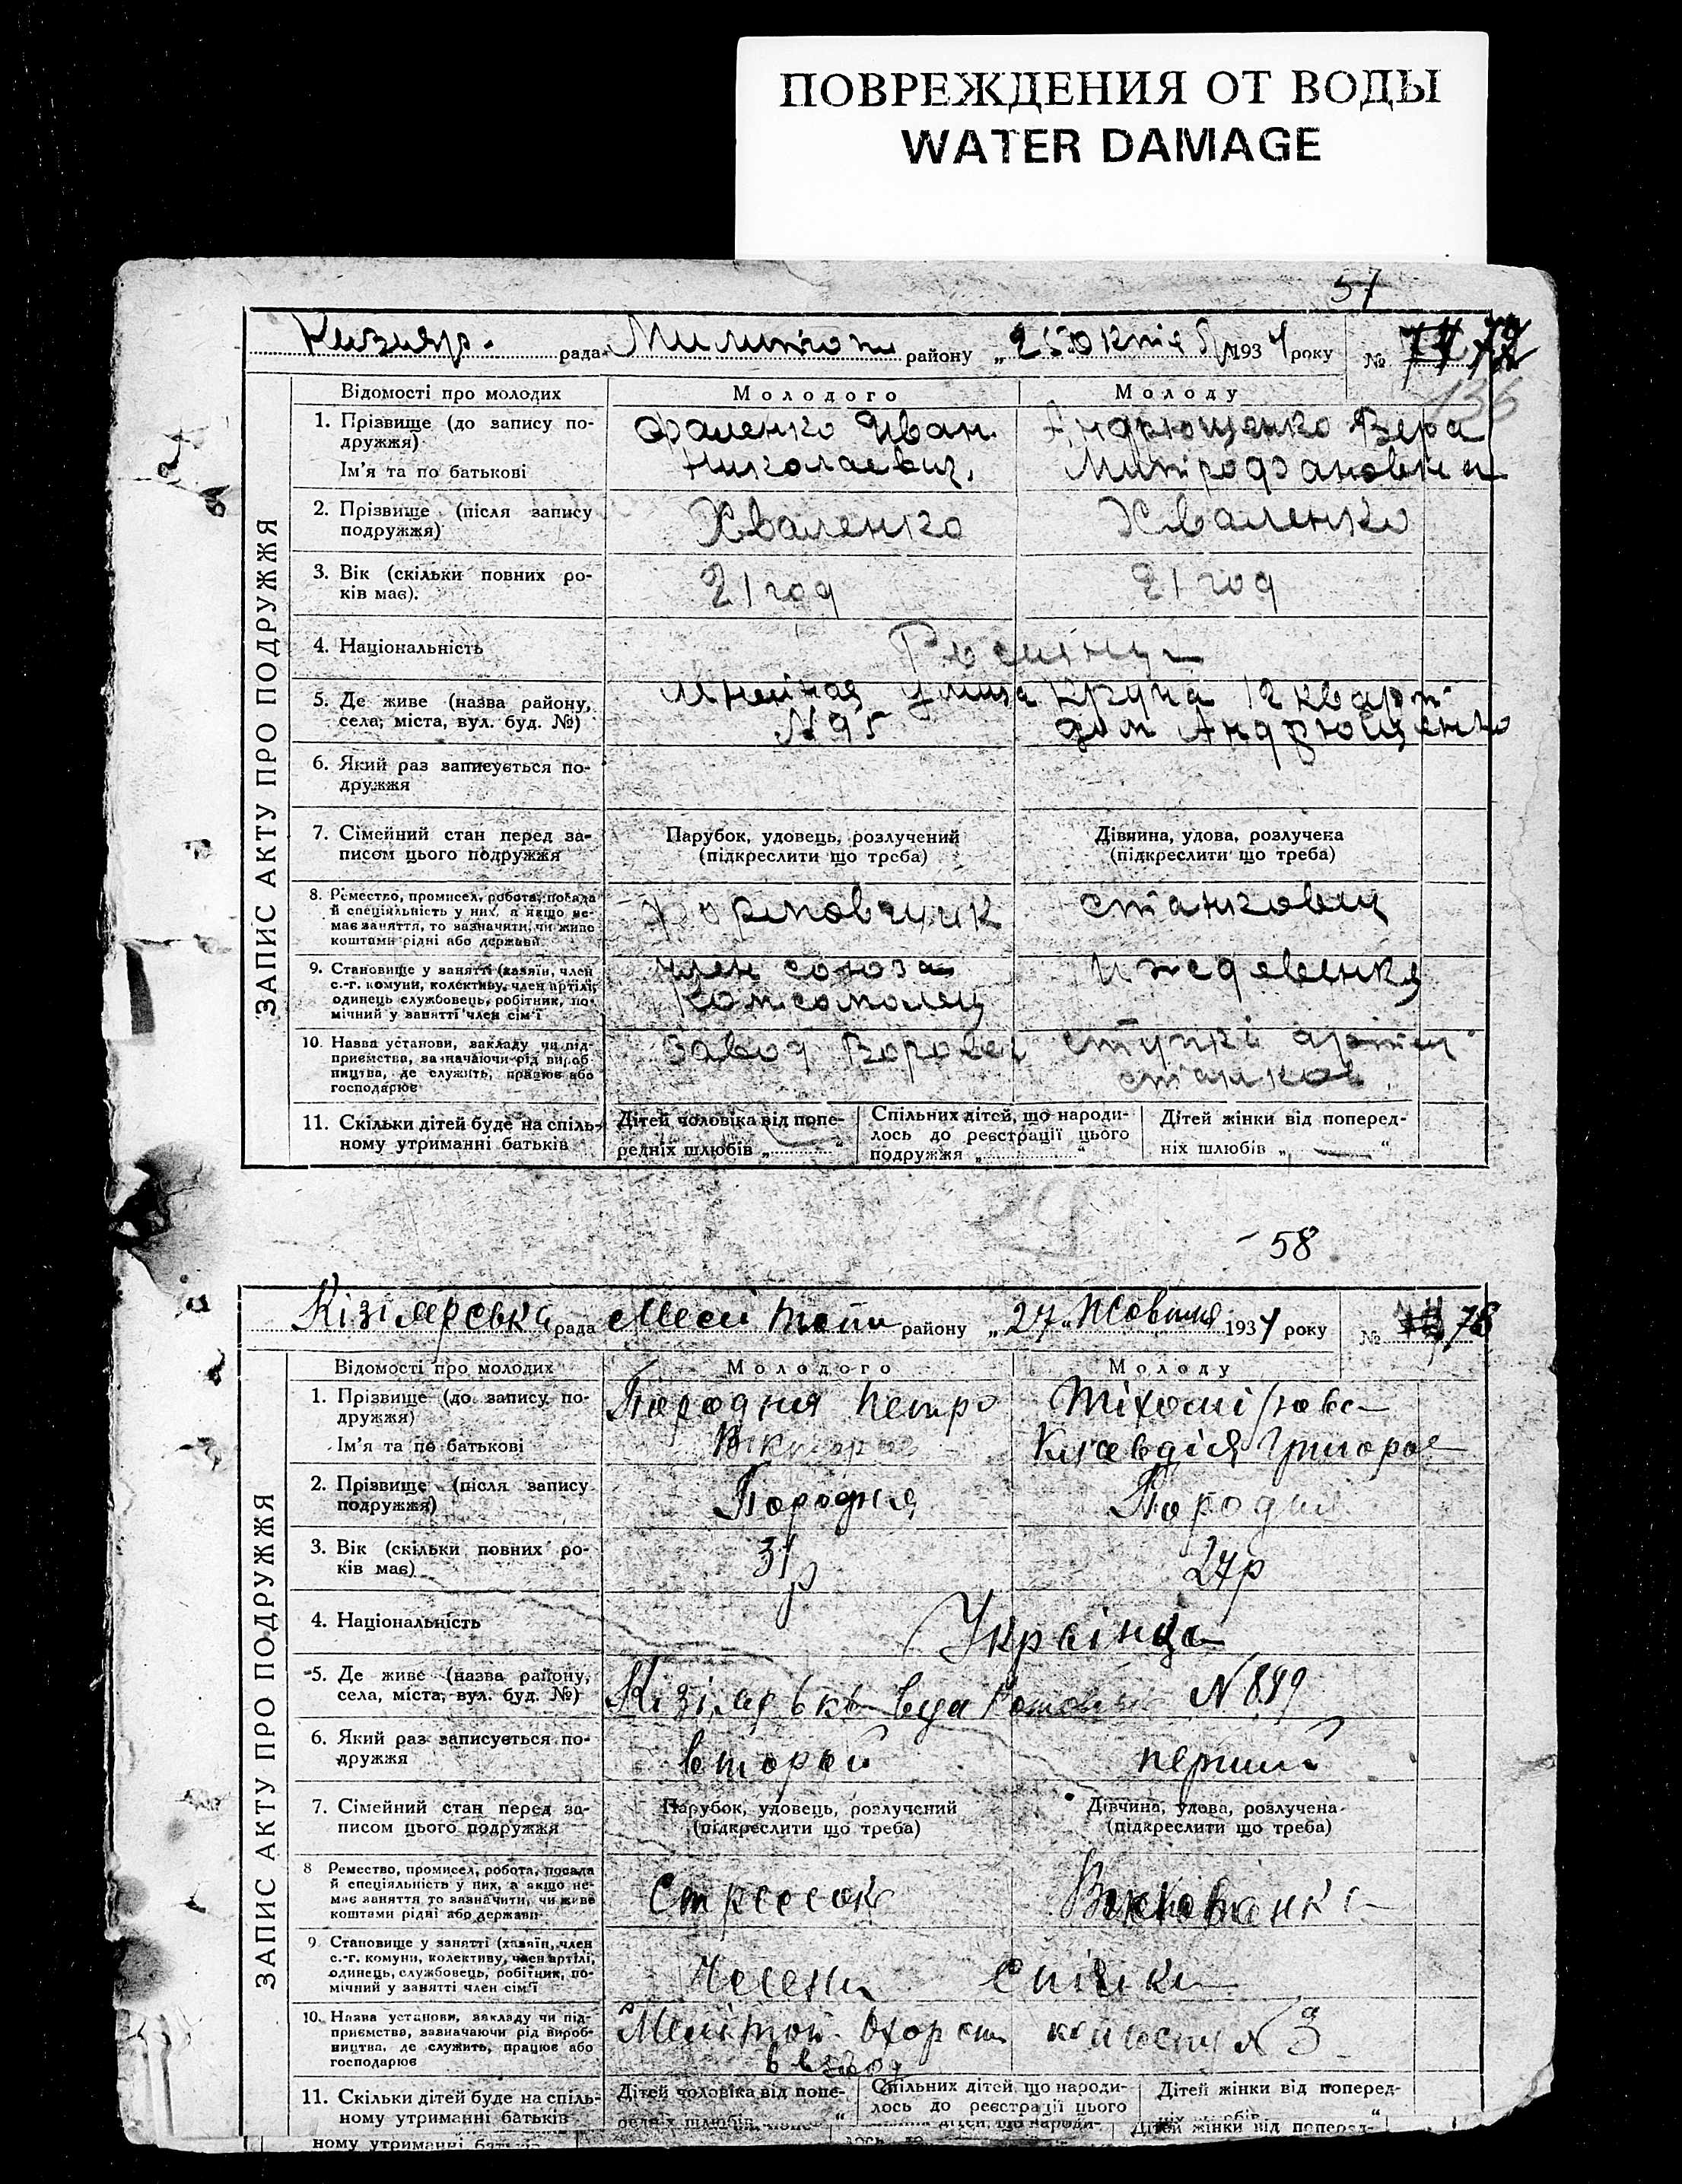 ПОВРЕЖДЕНИЯ ОТ ВОДЫ
WATER DAMAGE
57
Кизияр. рада Милитоп району „ 193 4 року № 72
136
ЗАПИС АКТУ ПРО ПОДРУЖЖЯ
Відомості про молодих Молодого Молоду
1. Прізвище (до запису по-
дружжя)
Ім'я та по батькові
Фаленко Иван
Николаевич.
Андрющенко Вера
Митрофановна
2. Прізвище (після запису
подружжя)
Хваленко Хваленко
3. Вік (скільки повних ро-
ків має).
21 год 21 год
4. Національність
5. Де живе (назва району,
села, міста, вул. буд. №)
улица
N 95
12 кварт
дом Андрющенко
6. Який раз записується по-
дружжя
7. Сімейний стан перед за-
писом цього подружжя
Парубок, удовець, розлучений
(підкреслити що треба)
Дівчина, удова, розлучена
(підкреслити що треба)
8. Ремество, промисел, робота, посада
й спеціяльність у них, а якщо не-
має заняття, то зазначити, чи живе
коштами рідні або держави
Формовщик
9. Становище у занятті (хазяїн, член
с.-г. комуни, колективу, член артілі,
одинець, службовець, робітник, по-
мічний у занятті член сім'ї
член союза
комсомолец
Иждевенка
10. Назва установи, закладу чи під-
приємства, зазначаючи рід вироб-
ництва, де служить, працює або
господарює
Завод
11. Скільки дітей буде на спіль-
ному утриманні батьків
Дітей чоловіка від попе-
редніх шлюбів „ “
Спільних дітей, що народи-
лось до реєстрації цього
подружжя „ “
Дітей жінки від поперед-
ніх шлюбів „ “
58
Кізіярська рада Меліtoп району „27“ Жовтня 193 4 року № 73
ЗАПИС АКТУ ПРО ПОДРУЖЖЯ
Відомості про молодих Молодого Молоду
1. Прізвище (до запису по-
дружжя)
Ім'я та по батькові
Породня Петро
Тіхомірова
Клавдія Григоров
2. Прізвище (після запису
подружжя)
Породня Породня
3. Вік (скільки повних ро-
ків має)
31 р 24 р
4. Національність
Українці
5. Де живе (назва району,
села, міста, вул. буд. №)
Кізіяр 6 кв N 889
6. Який раз записується по-
дружжя
второй перший
7. Сімейний стан перед за-
писом цього подружжя
Парубок, удовець, розлучений
(підкреслити що треба)
Дівчина, удова, розлучена
(підкреслити що треба)
8 Ремество, промисел, робота, посада
й спеціяльність у них, а якщо не-
має заняття то зазначити, чи живе
коштами рідні або держави
Стрелок
9 Становище у занятті (хазяїн, член
с.-г. комуни, колективу, член артілі,
одинець, службовець, робітник, по-
мічний у занятті член сім'ї
Члени Спілки
10. Назва установи, закладу чи під-
приємства, зазначаючи рід вироб-
ництва, де служить, працює або
господарює
Меліtoп N 3
11. Скільки дітей буде на спіль-
ному утриманні батьків
Дітей чоловіка від попе-
редніх шлюбів
Спільних дітей, що народи-
лось до реєстрації цього
Дітей жінки від поперед-
ному утриманні
дітей, що народи-
Дітей жінки від поперед-